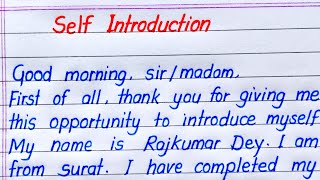 Self Introduction
Good morning, sir/madam,
First of all, thank you for giving me
this opportunity to introduce myself
My name is Rajkumar Dey. I am
from surat. I have completed my